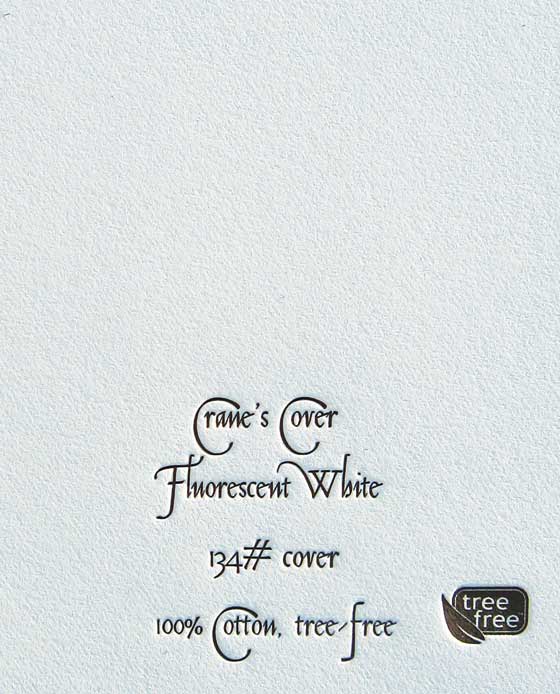 Crane's Cover
Fluorescent White
134# cover
100% Cotton, tree-free
tree
free